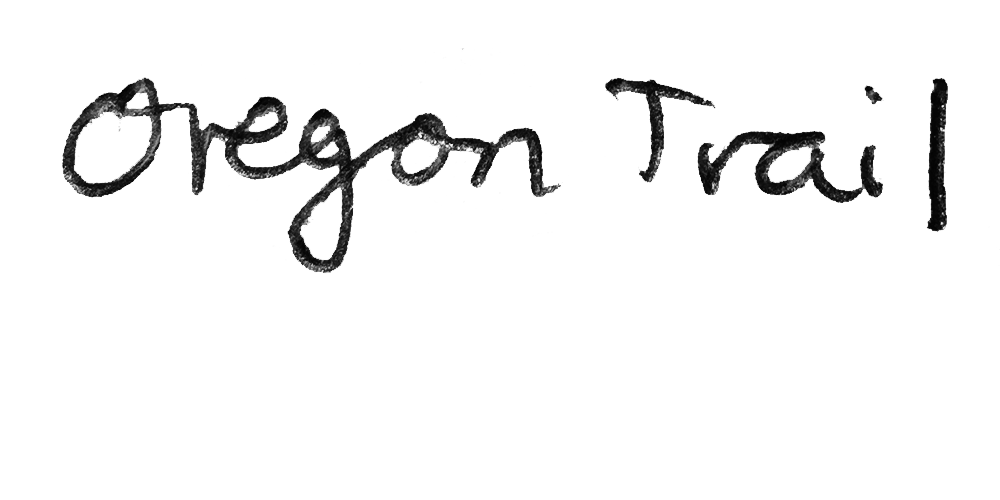 Oregon Trail